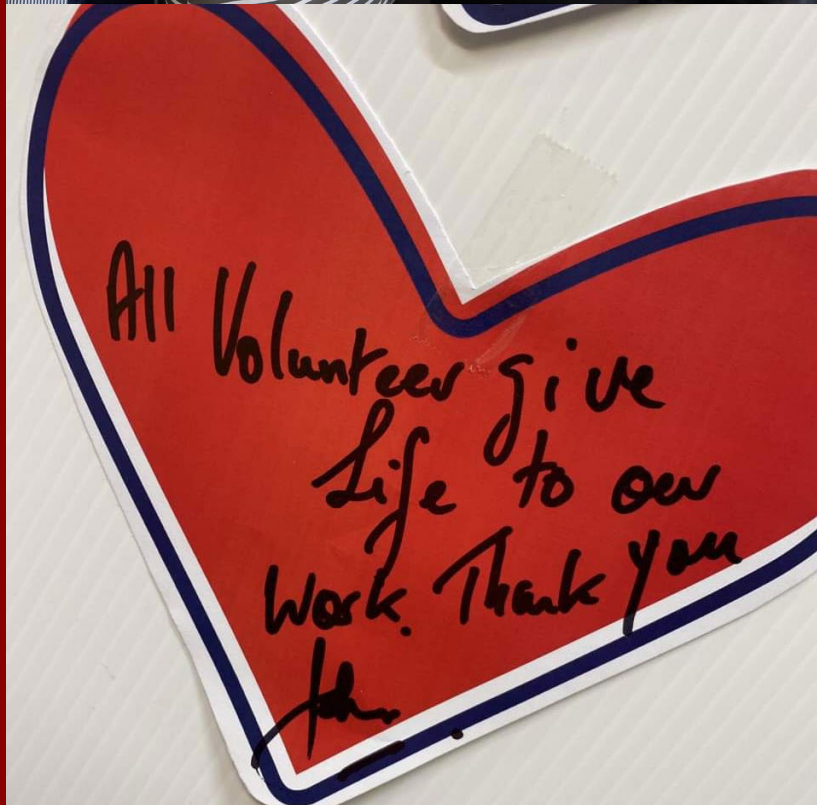 All Volunteer give
Life to our
Work. Thank you
John